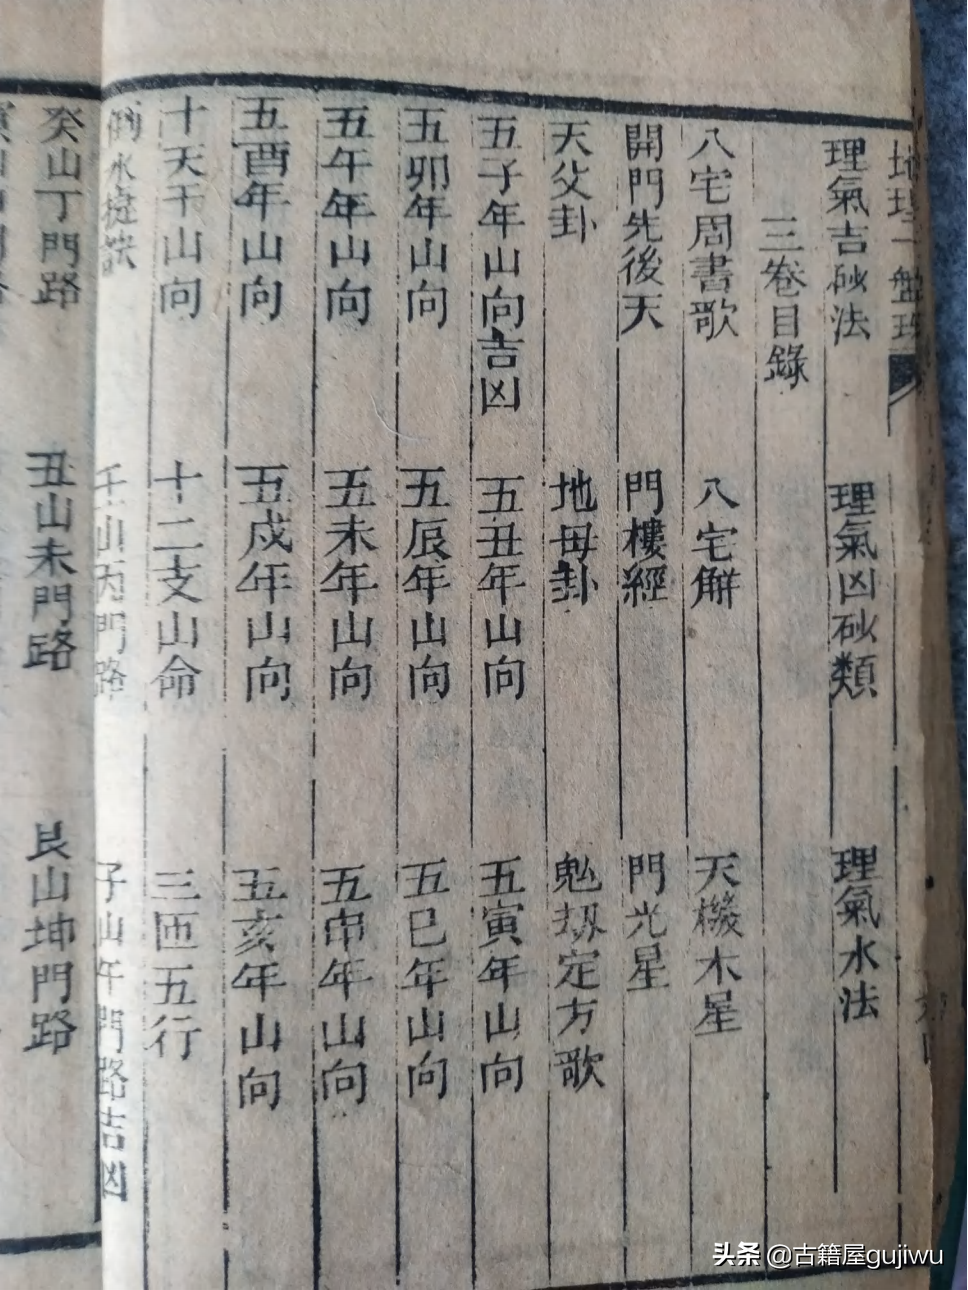 地理一盤珠
理氣吉砂法 理氣凶砂類 理氣水法
三卷目錄
八宅周書歌 八宅解 天機木星
開門先後天 門樓經 門光星
天父卦 地母卦 尅刼定方歌
五子年山向吉凶 五丑年山向 五寅年山向
五卯年山向 五辰年山向 五巳年山向
五午年山向 五未年山向 五申年山向
五酉年山向 五戌年山向 五亥年山向
十天干山向 十二支山命 三匝五行
水 訣 壬山丙門路 子山午門路吉凶
癸山丁門路 丑山未門路 艮山坤門路
头条 @古籍屋gujiwu